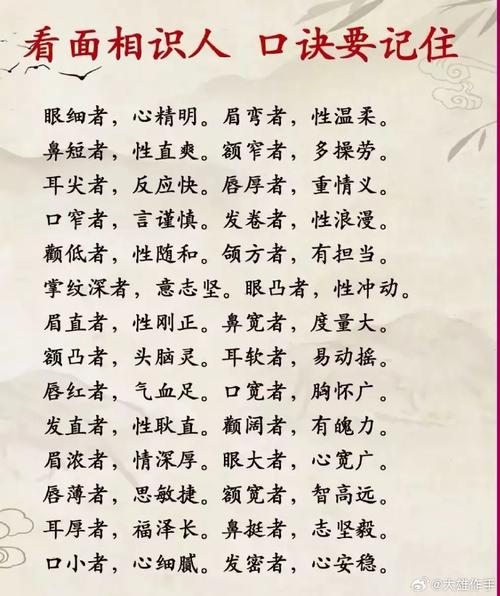 看面相识人 口诀要记住
眼细者，心精明。眉弯者，性温柔。
鼻短者，性直爽。额窄者，多操劳。
耳尖者，反应快。唇厚者，重情义。
口窄者，言谨慎。发卷者，性浪漫。
颧低者，性随和。颌方者，有担当。
掌纹深者，意志坚。眼凸者，性冲动。
眉直者，性刚正。鼻宽者，度量大。
额凸者，头脑灵。耳软者，易动摇。
唇红者，气血足。口宽者，胸怀广。
发直者，性耿直。颧阔者，有魄力。
眉浓者，情深厚。眼大者，心宽广。
唇薄者，思敏捷。额宽者，智高远。
耳厚者，福泽长。鼻挺者，志坚毅。
口小者，心细腻。发密者，心安稳。
@大雄作手